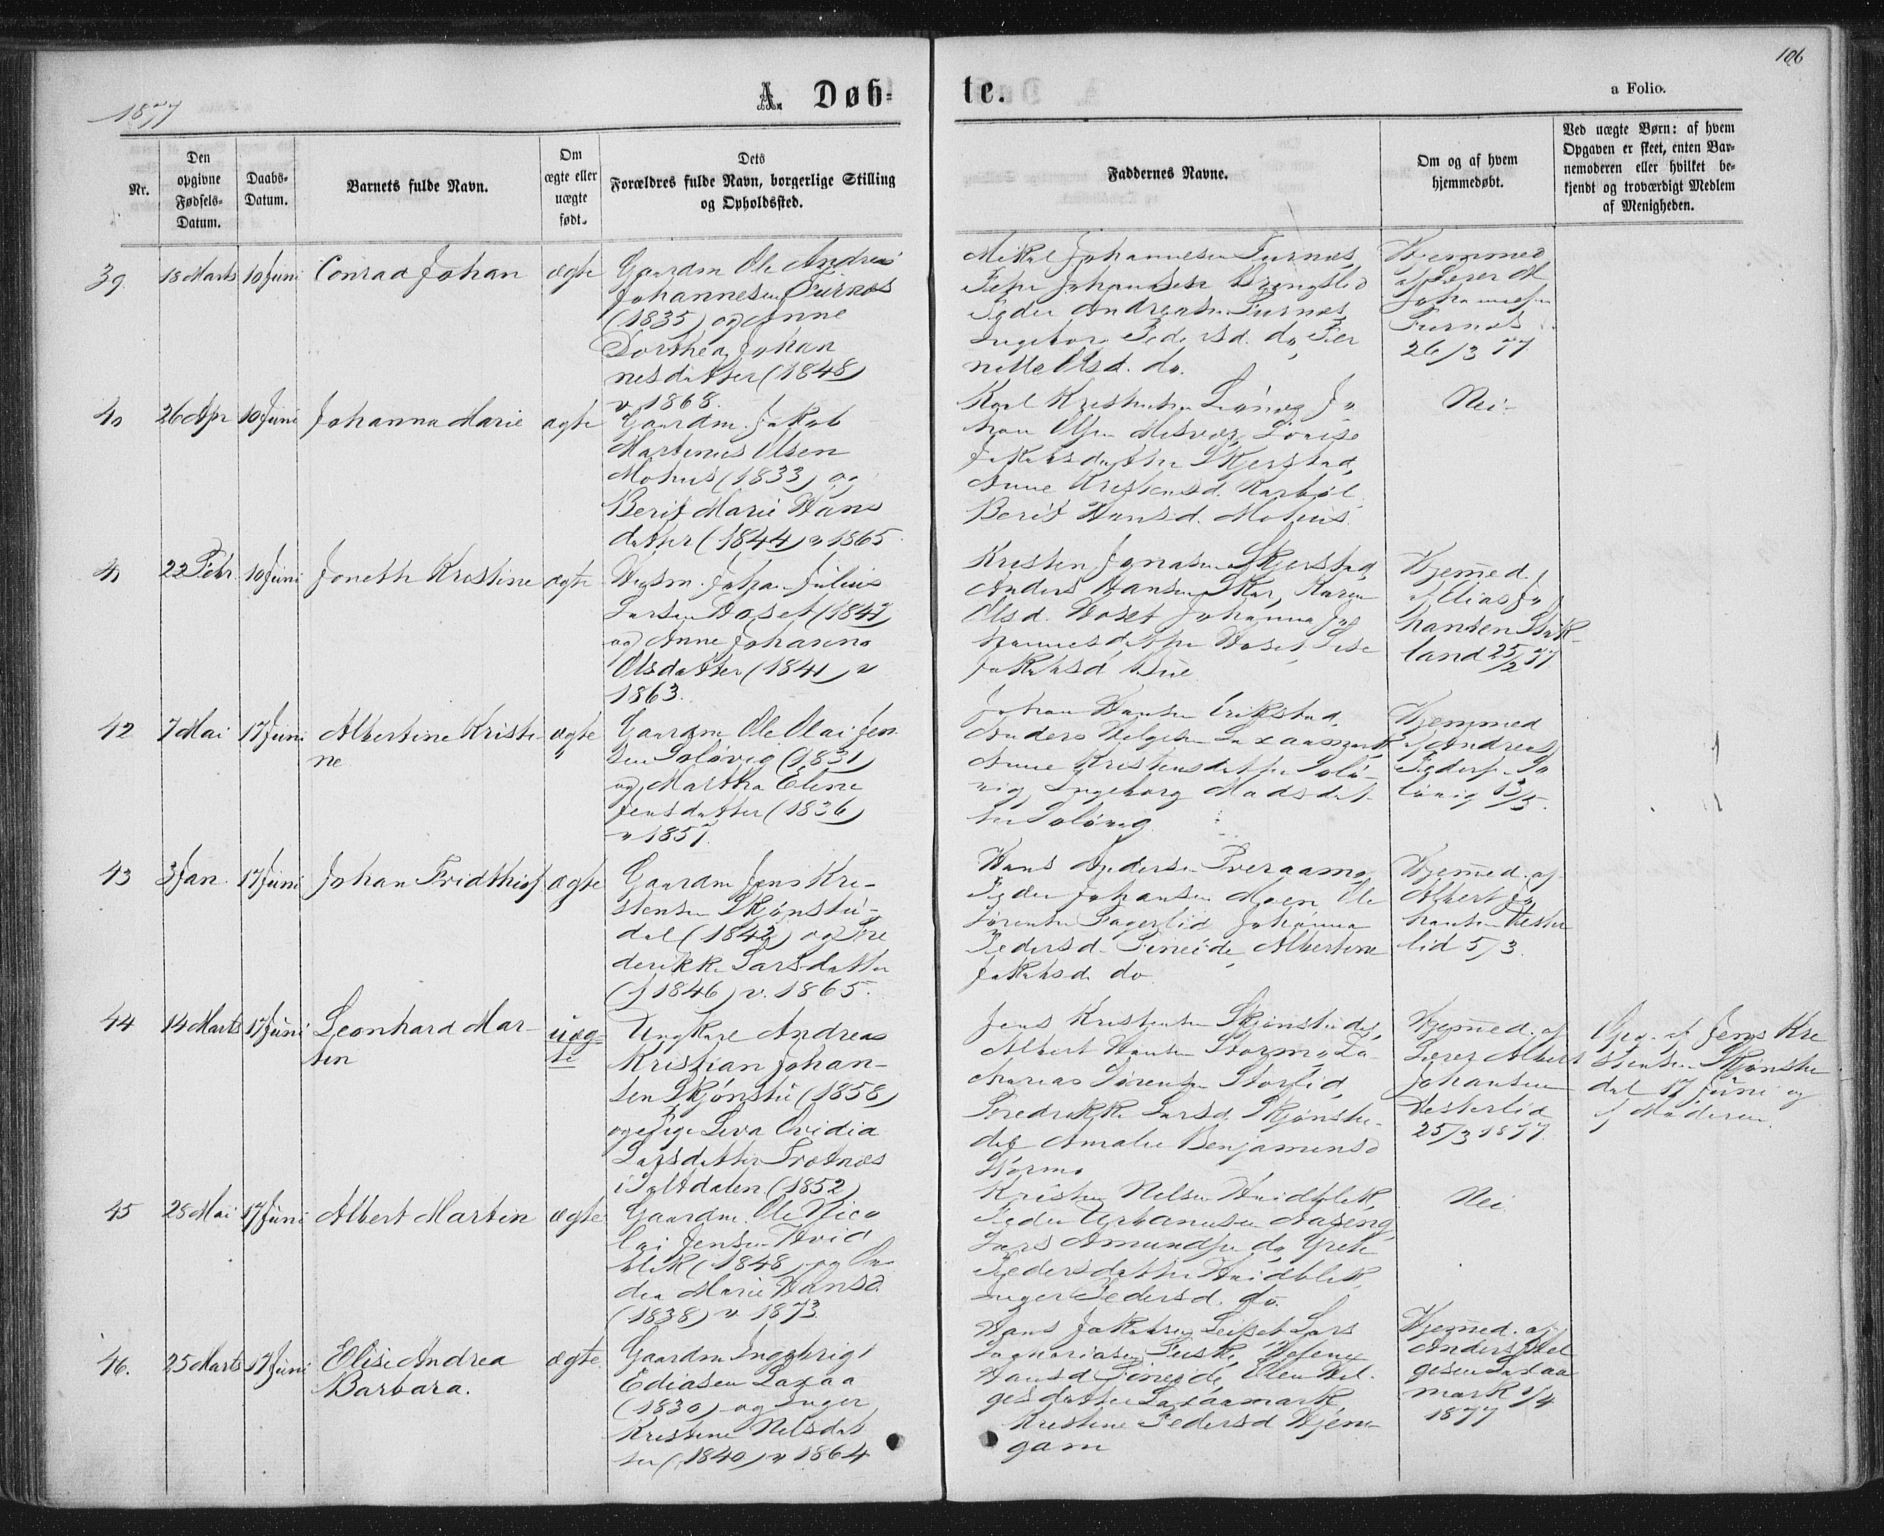 106
1877
A. Døb-
te.
a Folio.
Nr.
Den opgivne Fødsels-Datum.
Daabs-Datum.
Barnets fulde Navn.
Om ægte eller uægte født.
Dets Forældres fulde Navn, borgerlige Stilling og Opholdssted.
Faddernes Navne.
Om og af hvem hjemmedøbt.
Ved uægte Børn: af hvem Opgaven er skeet, enten Barnemoderen eller hvilket bekjendt og troværdigt Medlem af Menigheden.
39 18 Marts 10 Juni Conrad Johan ægte
Gaardm Ole Andreas
Johannesen Furnes
(1835) og Anne
Dorthea Johan
nesdatter (1848)
v 1868.
Mikal Johannesen Furnes,
Peder Johannesen
Peder Andreasen Furnes,
Ingebor Pedersd. do, Per
nille Olsd. do.
Hjemmed
af Lærer
Johannesen
Furnes
26/3 77.
40 26 Apr 10 Juni Johanna Marie ægte
Gaardm. Jakob
Martinus Olsen
Mohus (1833) og
Berit Marie Hans
datter (1844) v 1865.
Karl Kristensen Jo
han Olsen Misvær, Lovise
Jakobsdatter Skjerstad,
Anne Kristensd. Karbøl
Berit Hansd. Mohus.
Nei.
41 22 Febr 10 Juni Joneth Kristine ægte
Husm. Johan Julius
Larsen Hoset (1847)
og Anne Johanna
Olsdatter (1841) v
1863.
Kristen Jonasen Skjerstad,
Anders Hansen Skar, Karen
Olsd. Hoset Johanna Jo
hannesdatter Hoset, Lise
Jakobsd.
Hjemed.
af Elias Jo
hansen
land 25/2 77
42 7 Mai 17 Juni Albertine Kristi-
ne
ægte
Gaardm Ole Olai Jen
sen Soløvig (1831)
og Martha Eline
Jensdatter (1836)
v 1857.
Johan Hansen Erikstad,
Anders Helgesen Laxaamark
Anne Kristensdatter Solø-
vig, Ingeborg Madsdat-
ter Soløvig
Hjemmed
af Andreas
Pedersen So
løvig 13/5.
43 3 Jan. 17 Juni Johan Fridthiof ægte
Gaardm Jens Kri-
stensen Skjønstu-
dal (1842) og Fre
derikke Larsdatter
(1846) v. 1865.
Hans Andersen Tveraamo
Peder Johansen Moen Ole
Sørensen Fagerlid Johanna
Pedersd. Fineide, Albertine
Jakobsd do
Hjemed. af
Albert Jo
hansen Vester
lid 5/3.
44 14 Marts 17 Juni Leonhard Mar-
tin
uæg-
te
Ungkarl Andreas
Kristian Johan-
sen Skjønstu (1858)
og Pige Leva Ovidia
Larsdatter Trotnæs
i Saltdalen (1852)
Jens Kristensen Skjønstudal,
Albert Hansen Stormo, Za
karias Sørensen Storlid,
Fredrikke Larsd. Skjønstu-
dal Amalie Benjaminsd
Stormo
Hjemed. af
Lærer Albert
Johansen
Vesterlid
25/3 1877.
Opg. af Jens Kri
stensen Skjønstu
dal 17 Juni og
af Moderen.
45 28 Mai 17 Juni Albert Martin ægte
Gaardm. Ole Nico
lai Jensen Hvid
blik (1848) og
dea Marie Hansd.
(1838) v 1873.
Kristen Nilsen Hvidblik,
Peder Urbanusen Aaseng,
Lars Amundsen do, Grete
Pedersdatter Hvidblik,
Inger Pedersd. do.
Nei
46. 25 Marts 17 Juni Elise Andrea
Barbara.
ægte.
Gaardm Ingebrigt
Ediasen Laxaa
(1830) og Inger
Kristine Nilsdat
ter (1840) v 1864
Hans Jakobsen Leifset Lars
Zachariasen Fuske,
Hansd Fineide, Elen Hel
gesdatter Laxaamark,
Kristine Pedersd Hjem
gam
Hjemed. af
Anders Hel
gesen Laxaa
mark 2/4
1877